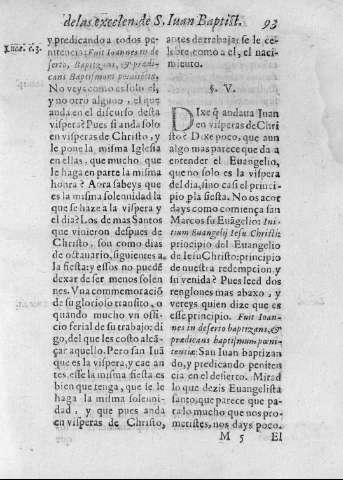 de las excelen. de S. Iuan Baptist. 93
Lucæ. c. 3.
y predicando a todos pe-
nitencia: Fuit Ioannes in de
serto, Baptizans, & prædi-
cans Baptismum pœnitētiæ.
No veys como es solo el,
y no otro alguno, el que
anda en el discurso desta
vispera? Pues si anda solo
en visperas de Christo, y
le pone la misma Iglesia
en ellas, que mucho que
le haga en parte la misma
honra? Aora sabeys que
es la misma solenidad la
que se haze a la vispera y
el dia? Los de mas Santos
que vinieron despues de
Christo, son como dias
de octauario, siguientes a
la fiesta: y essos no puedē
dexar de ser menos solen
nes. Vna commemoració
de su glorioso transito, o
quando mucho vn offi-
cio ferial de su trabajo: di
go, del que les costo alcā-
çar aquello. Pero san Iuā
que es la vispera, y cae an
tes, esse la misma fiesta es
bien que tenga, que se le
haga la misma solenni-
dad, y que pues anda
en visperas de Christo,
antes de trabajar se le ce-
lebre como a el, el naci-
miento.
§. V.
DIxe q̄ andaua Iuan
en visperas de Chri
sto? Dixe poco, que aun
algo mas parece que da a
entender el Euangelio,
que no solo es la vispera
del dia, sino casi el princi-
pio pla fiesta. No os acor
days como comiença san
Marcos su Euāgelio: Ini-
tium Euangelij Iesu Christi:
principio del Euangelio
de Iesu Christo: principio
de nuestra redempcion, y
su venida? Pues leed dos
renglones mas abaxo, y
vereys quien dize que es
esse principio. Fuit Ioan-
nes in deserto baptizans, &
prædicans baptismum pœni-
tentiæ: San Iuan baptizan
do, y predicando peniten
cia en el desierto. Mirad
lo que dezis Euangelista
santo, que parece que pa-
ta lo mucho que nos pro-
metistes, nos days poco.
M 5 El